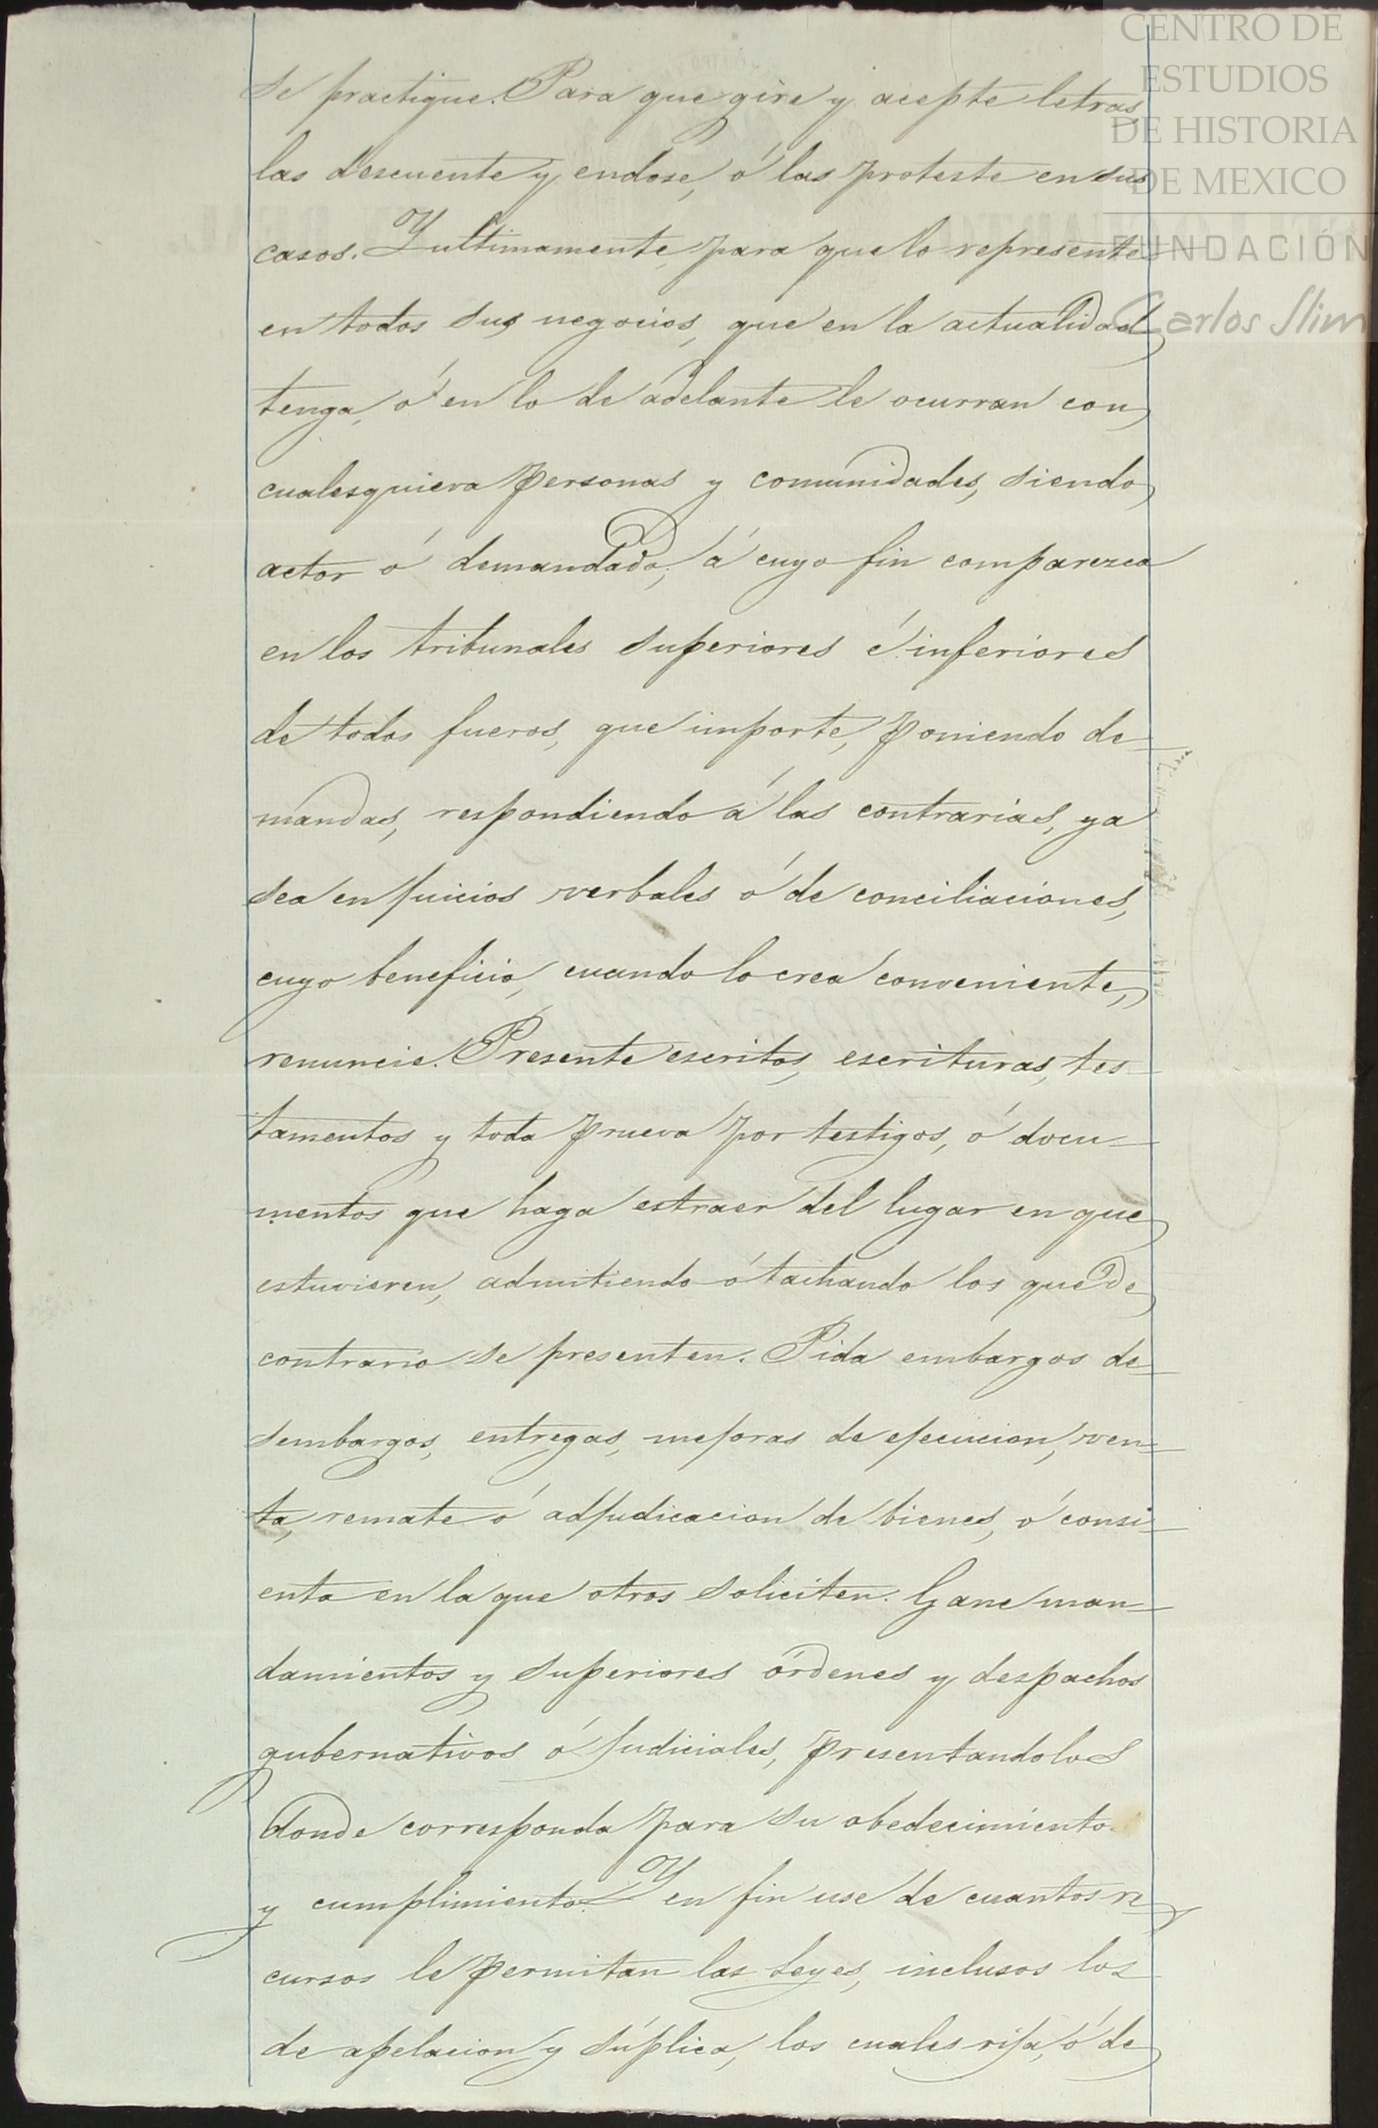 CENTRO DE
ESTUDIOS
DE HISTORIA
DE MEXICO
FUNDACIÓN
Carlos Slim
se practique. Para que gire y acepte letras,
las descuente y endose, ó las proteste en sus
casos. Y ultimamente para que lo represente
en todos sus negocios, que en la actualidad
tenga, ó en lo de adelante le ocurran con
cualesquiera personas y comunidades, siendo
actor ó demandado, á cuyo fin comparezca
en los tribunales superiores é inferiores
de todos fueros, que importe, poniendo de-
mandas, respondiendo á las contrarias, ya
sea en juicios verbales ó de conciliaciones,
cuyo beneficio, cuando lo crea conveniente,
renuncie. Presente escritos, escrituras, tes-
tamentos y toda prueva por testigos, ó docu-
mentos que haga estraer del lugar en que
estuvieren, admitiendo ó tachando los que de
contrario se presenten. Pida embargos de-
sembargos, entregas, mejoras de ejecucion, ven-
ta, remate ó adjudicacion de bienes, ó consi-
enta en la que otros soliciten. Gane man-
damientos y superiores órdenes y despachos
gubernativos ó judiciales, presentandolos
donde corresponda para su obedecimiento
y cumplimiento. Y en fin use de cuantos re-
cursos le permitan las leyes, inclusos los
de apelacion y súplica, los cuales siga, ó de